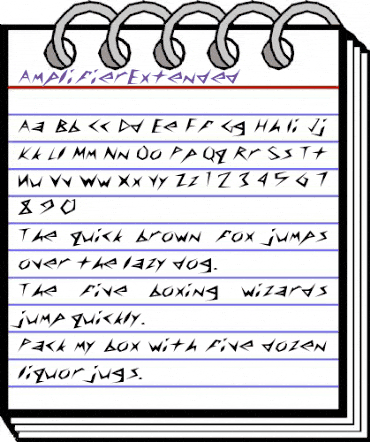 AmplifierExtended
Aa Bb Cc Dd Ee Ff Gg Hh Ii Jj
Kk Ll Mm Nn Oo Pp Qq Rr Ss Tt
Uu Vv Ww Xx Yy Zz 1 2 3 4 5 6 7
8 9 0
The quick brown fox jumps
over the lazy dog.
The five boxing wizards
jump quickly.
Pack my box with five dozen
liquor jugs.